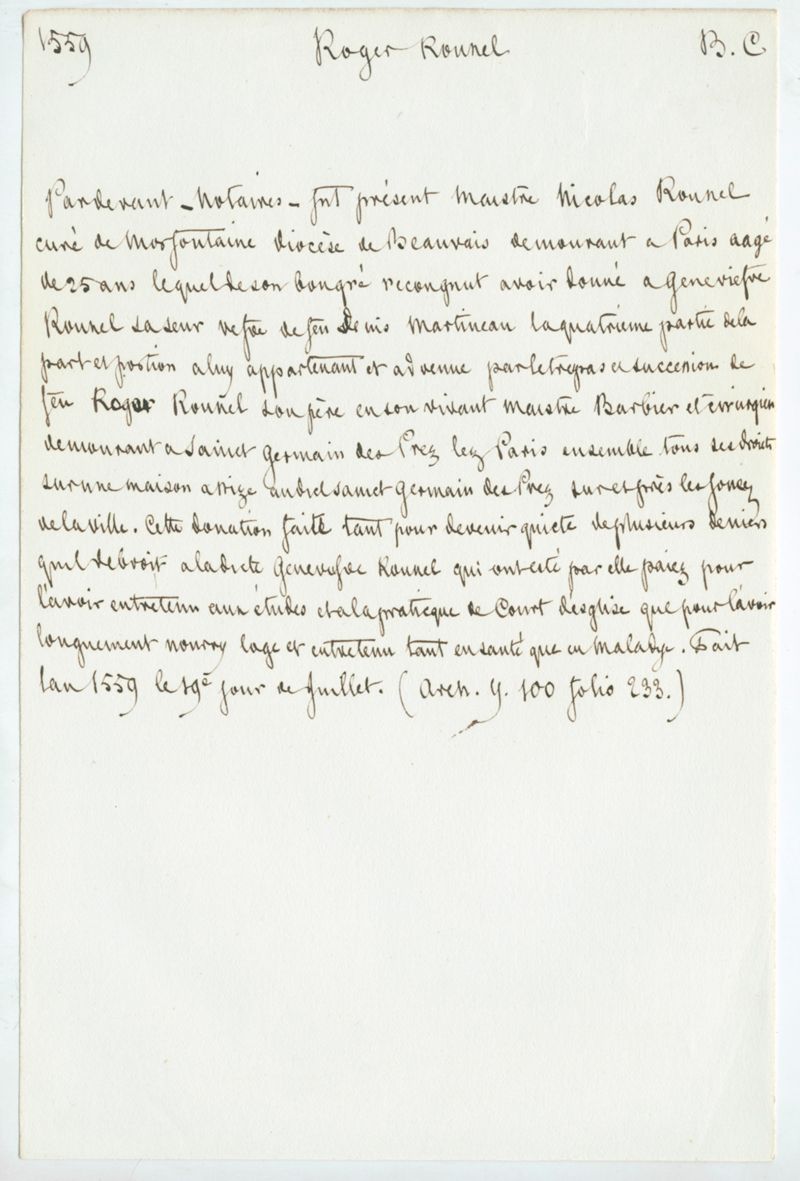 1559 Roger Rounel B. C
Pardevant _ Notaires _ fut présent Maistre Nicolas Rounel
curé de Morfontaine diocèse de Beauvais demourant a Paris aagé
de 25 ans lequel de son bon gré recongnut avoir donné a Geneviefve
Rounel sa seur vefve de feu Denis Martineau la quatrieme partie de la
part et portion a luy appartenant et advenue par le trepas et succession de
feu Roger Rounel son père en son vivant Maistre Barbier et cirurgien
demourant a Sainct Germain des Prez lez Paris ensemble tous ses droicts
sur une maison assize audict Sainct Germain des Prez sur et près les fossez
de la ville. Cette donation faite tant pour devenir quicte de plusieurs deniers
quil debvoit a ladicte Genevefve Rounel qui ont esté par elle paiez pour
l'avoir entretenu aux études et a la praticque de Court d'esglise que pour l'avoir
longuement nourry logé et entretenu tant en santé que en maladye. Fait
lan 1559 le 19e jour de Juillet. (Arch. Y. 100 folio 233.)